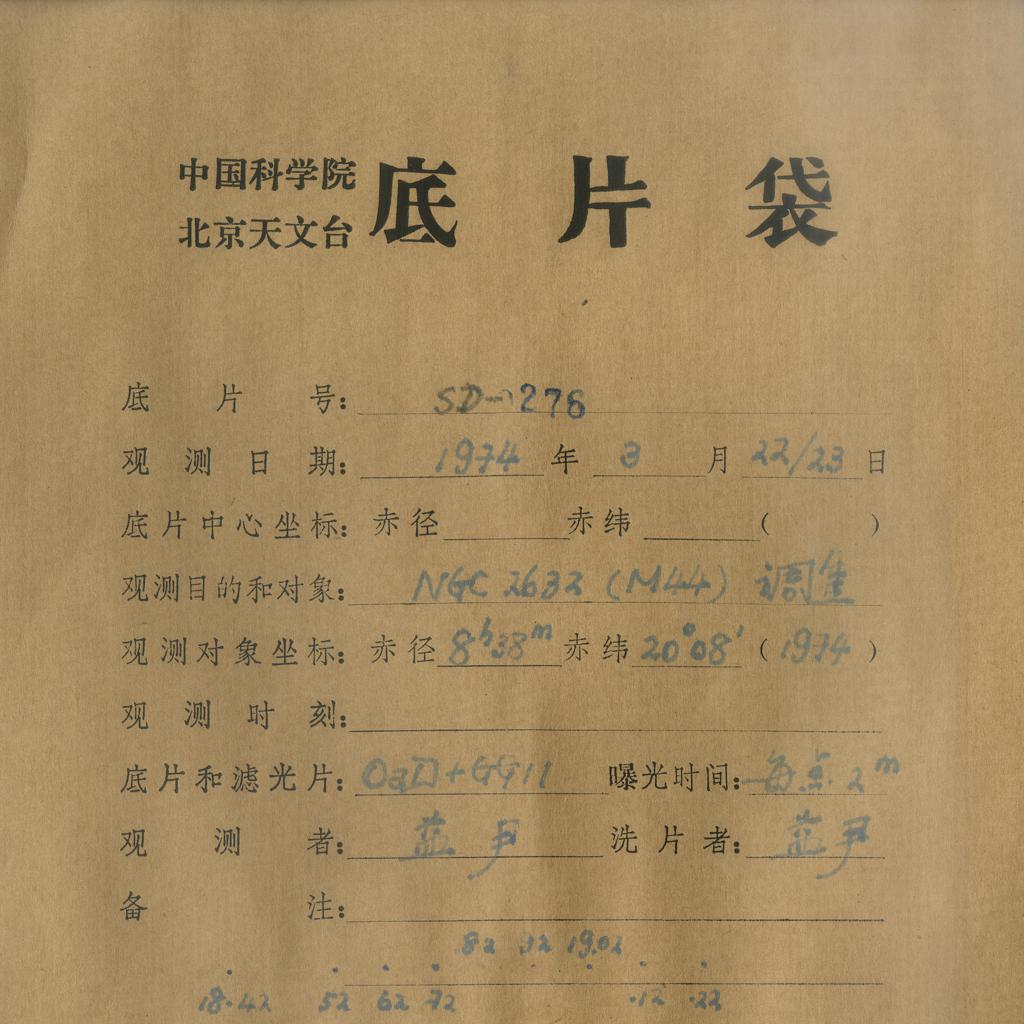 中国科学院
北京天文台
底片袋
底片号： SD-276
观测日期： 1974 年 3 月 22/23 日
底片中心坐标：赤径 赤纬 （ ）
观测目的和对象： NGC 2632 (M44) 调焦
观测对象坐标：赤径 8h38m 赤纬 20°08' （1974）
观测时刻：
底片和滤光片： OaD+GG11 曝光时间：每点2m
观测者： 洗片者：
备注：
82 92 19.02
18.42 52 62 72 .12 .22